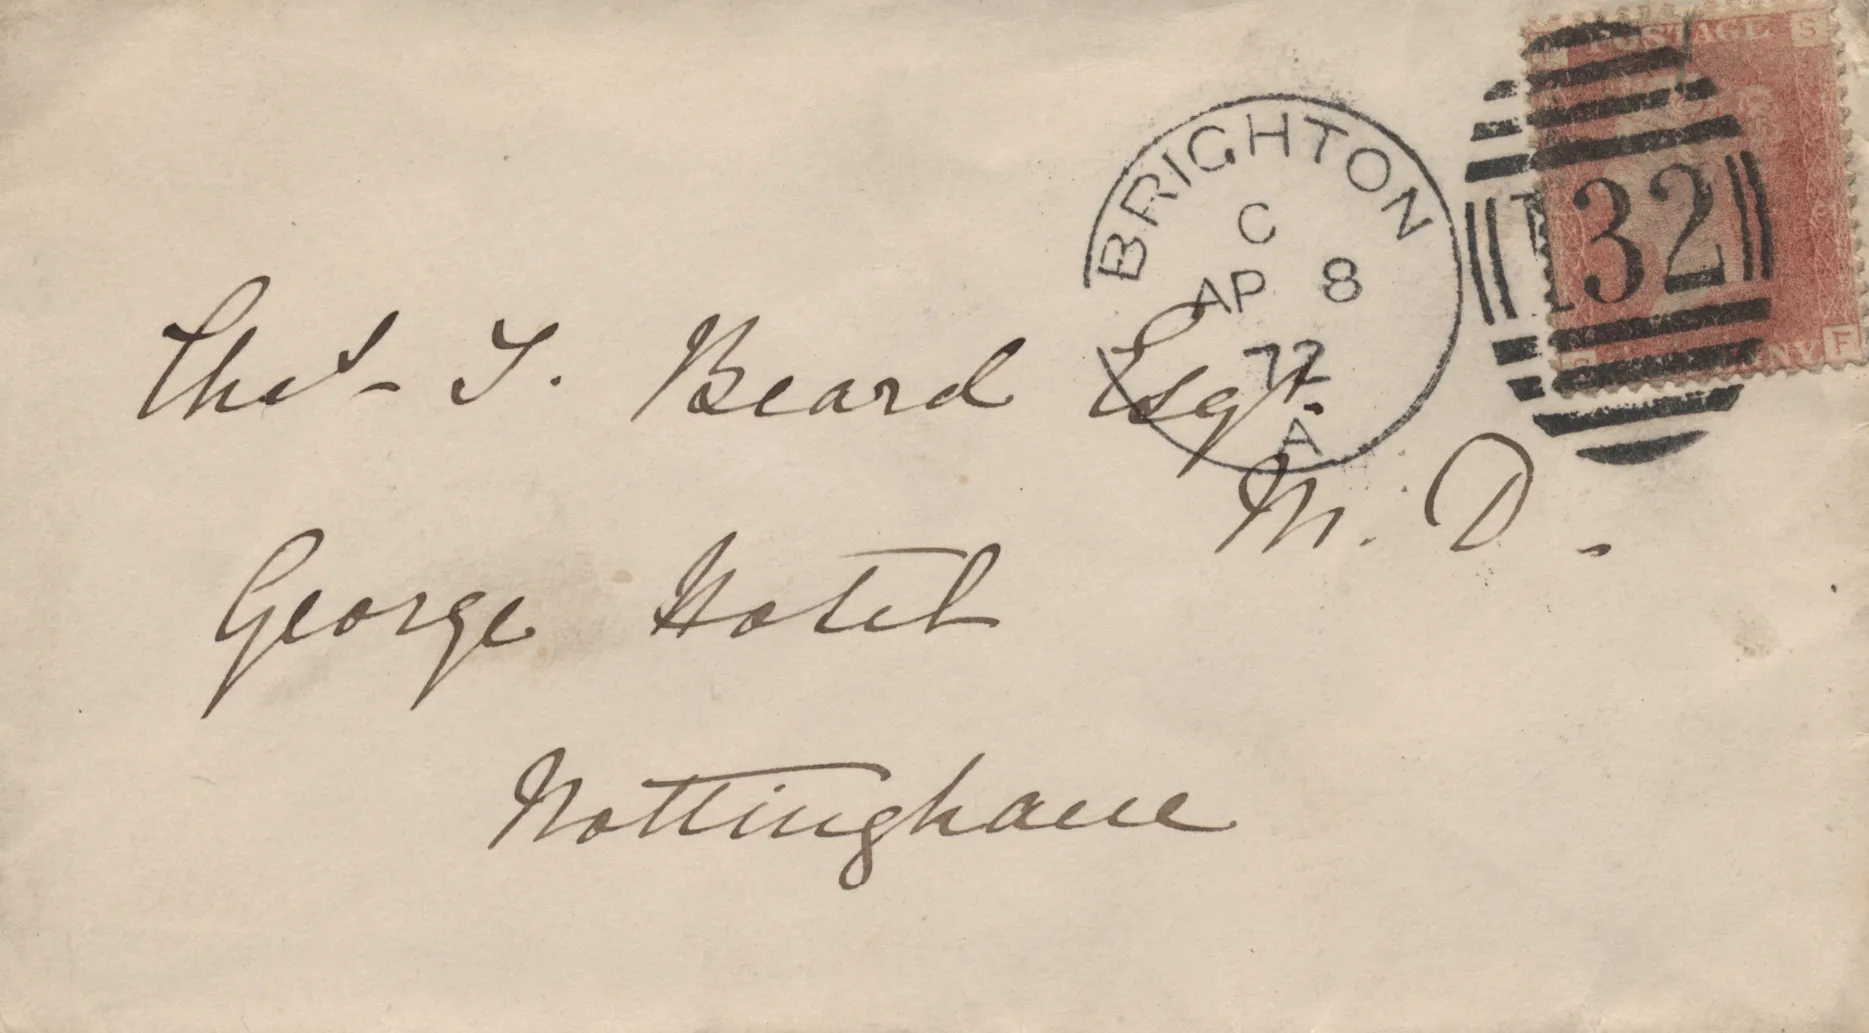 POSTAGE
S
BRIGHTON
C
AP 8
72
A
132
F
Thos. T. Beard Esqr.
M. D.
George Hotel
Nottingham